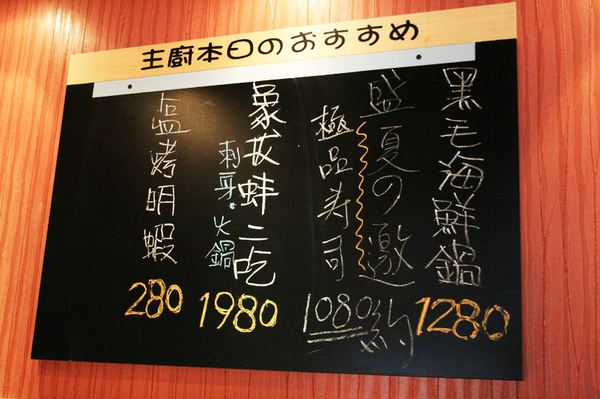 主廚本日のおすすめ
黑毛海鮮鍋
1280
盛夏の邀約
極品寿司
1080
象拔蚌二吃
刺身.火鍋
1980
塩烤明蝦
280